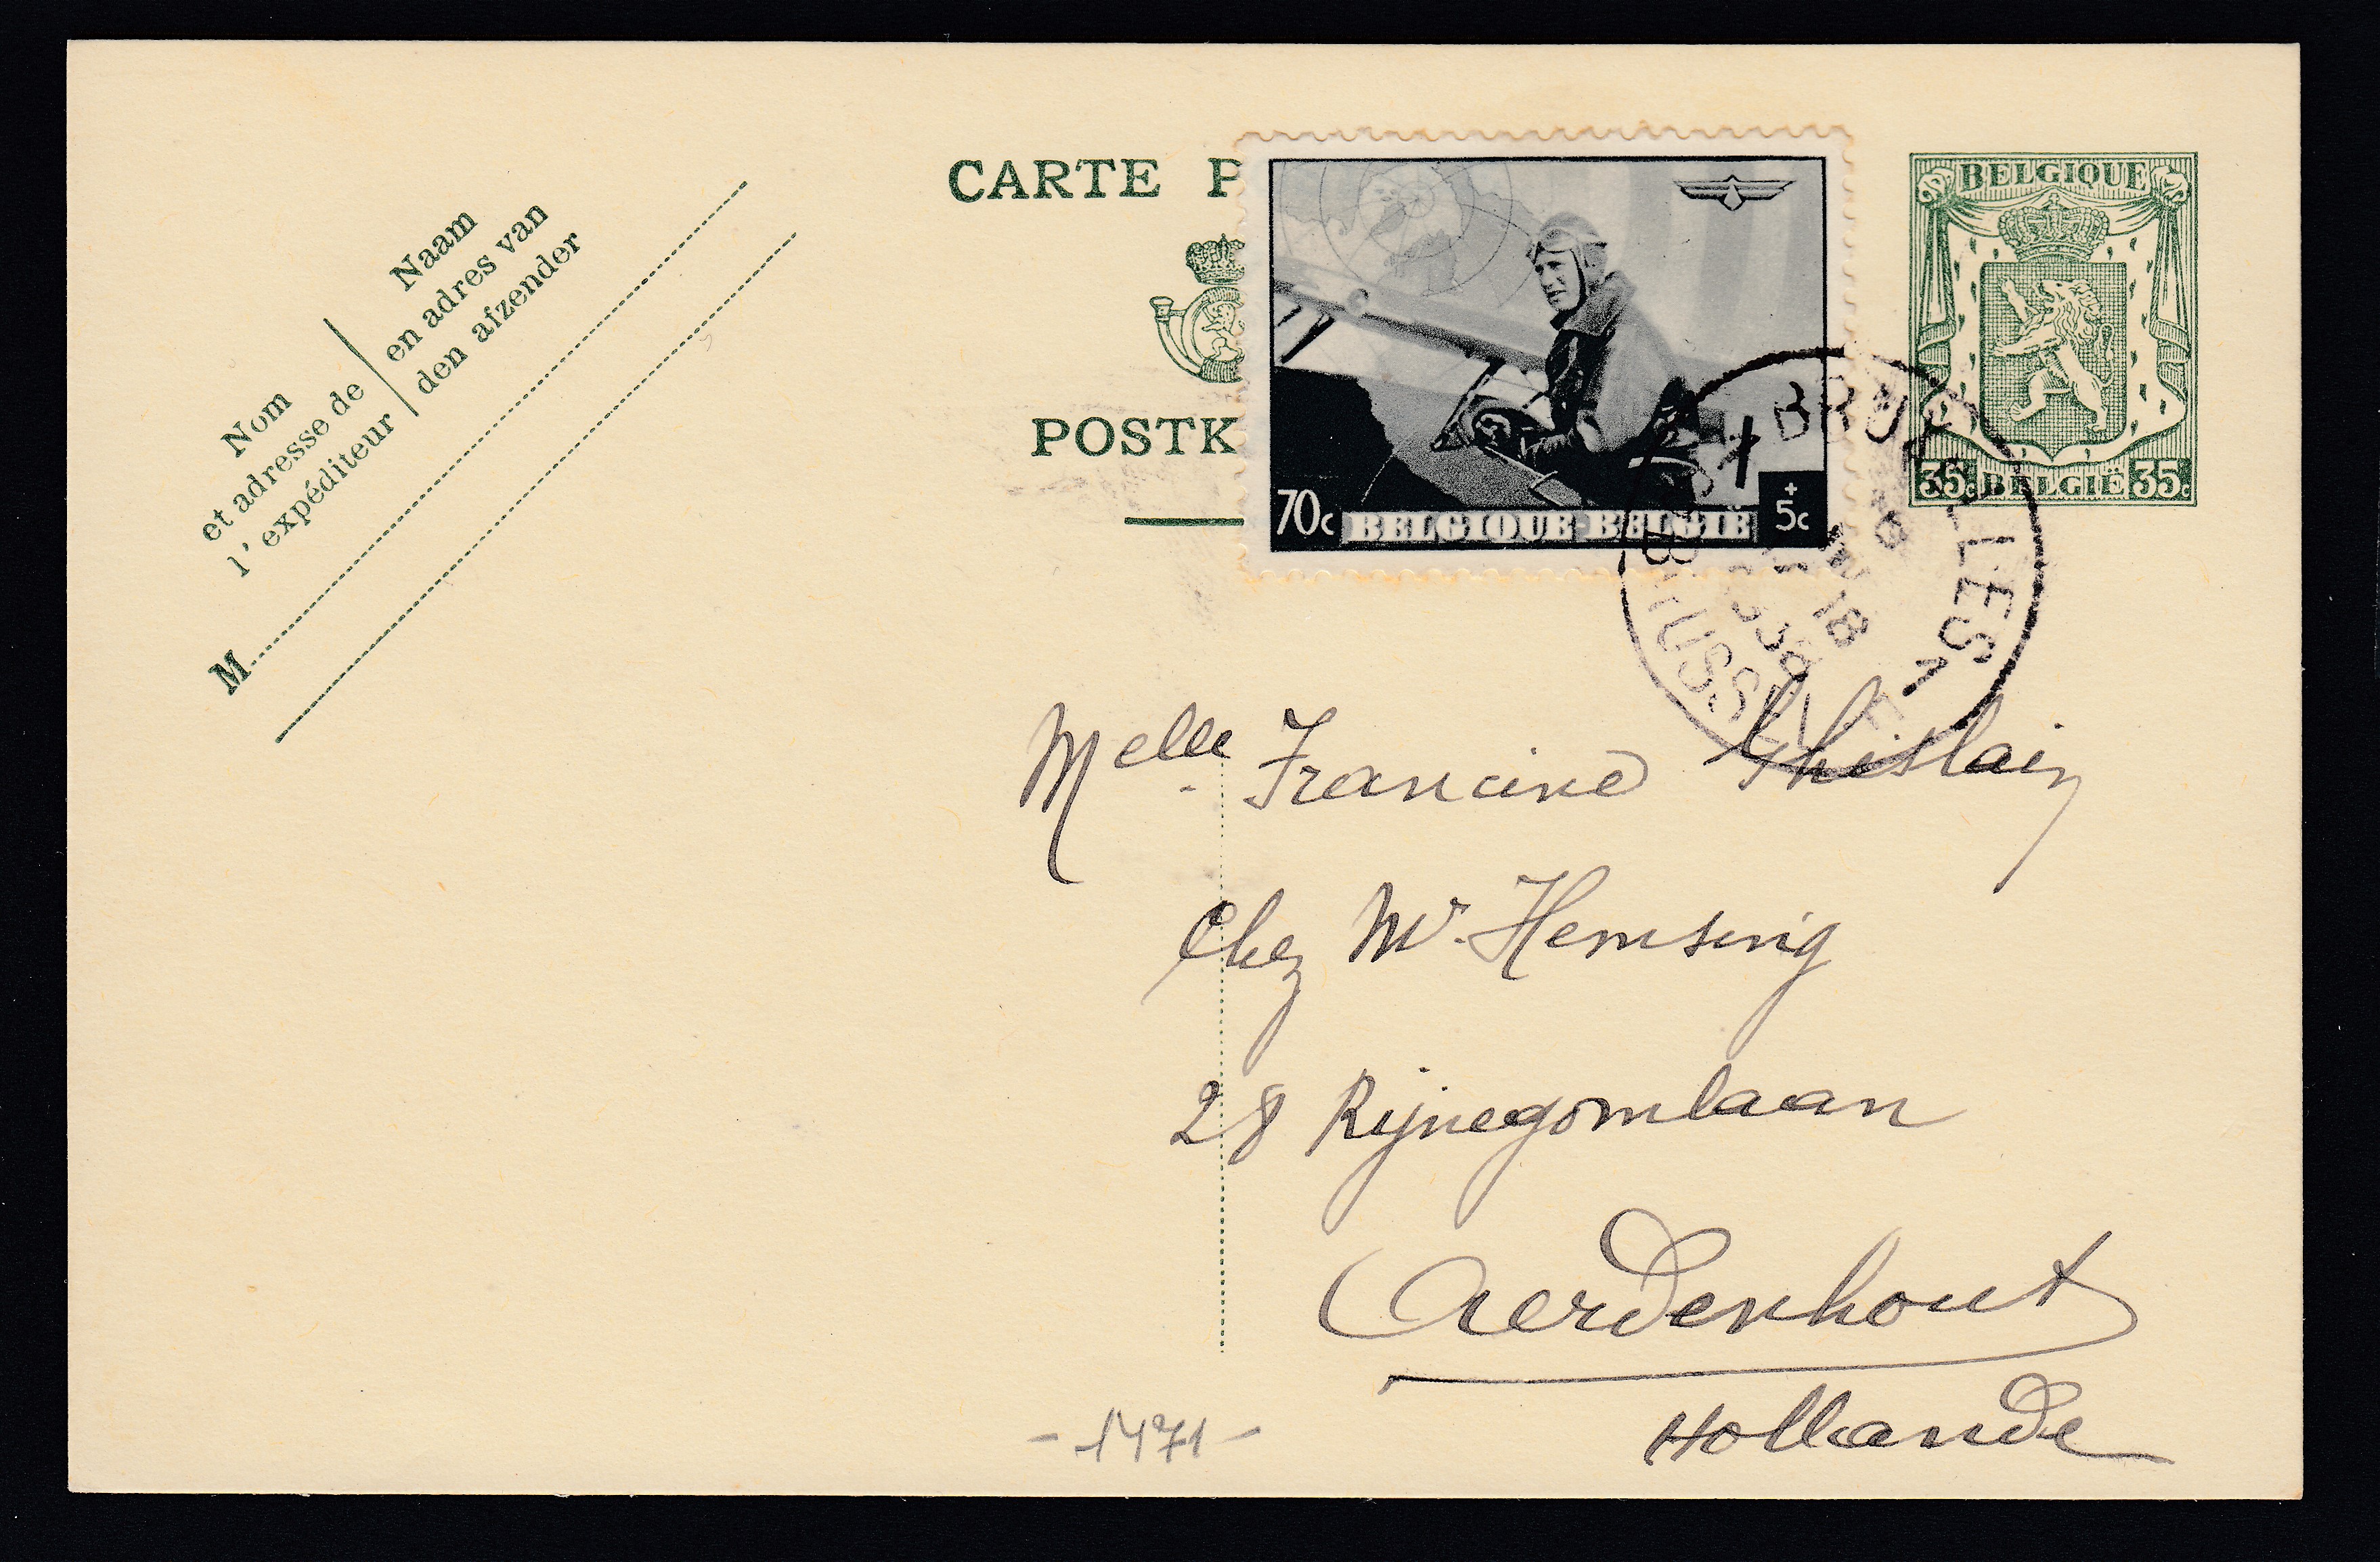 CARTE P
POSTK
Nom
et adresse de
l'expéditeur
Naam
en adres van
den afzender
M
70c BELGIQUE-BELGIË +5c
BELGIQUE
35c. BELGIË 35c.
BRUXELLES 1
BRUSSEL
18
Melle Francine Ghislain
Chez Mr. Hemsing
28 Rijnegomlaan
Aerdenhout
Hollande
- 1471 -